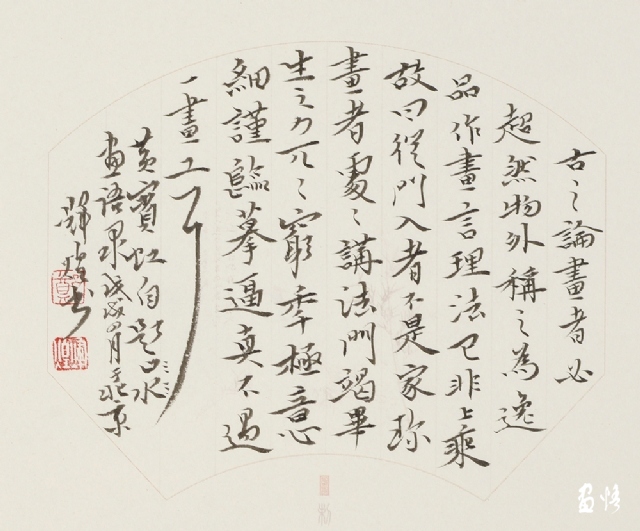 古之論畫者必
超然物外稱之為逸
品作畫言理法已非上乘
故曰從門入者不是家珍
畫者處處講法門竭畢
生之力兀兀窮年極意
細謹臨摹逼真不過
一畫工耳
黃賓虹自題山水
畫語錄 戊戌 月 於北京